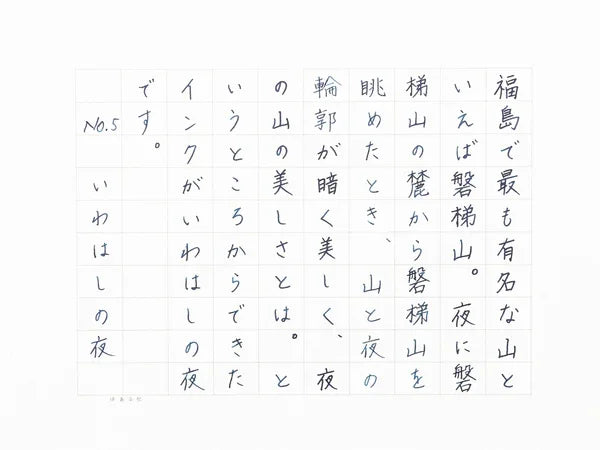 福島で最も有名な山と
いえば磐梯山。夜に磐
梯山の麓から磐梯山を
眺めたとき、山と夜の
輪郭が暗く美しく、夜
の山の美しさとは。と
いうところからできた
インクがいわはしの夜
です。
No.5 いわはしの夜